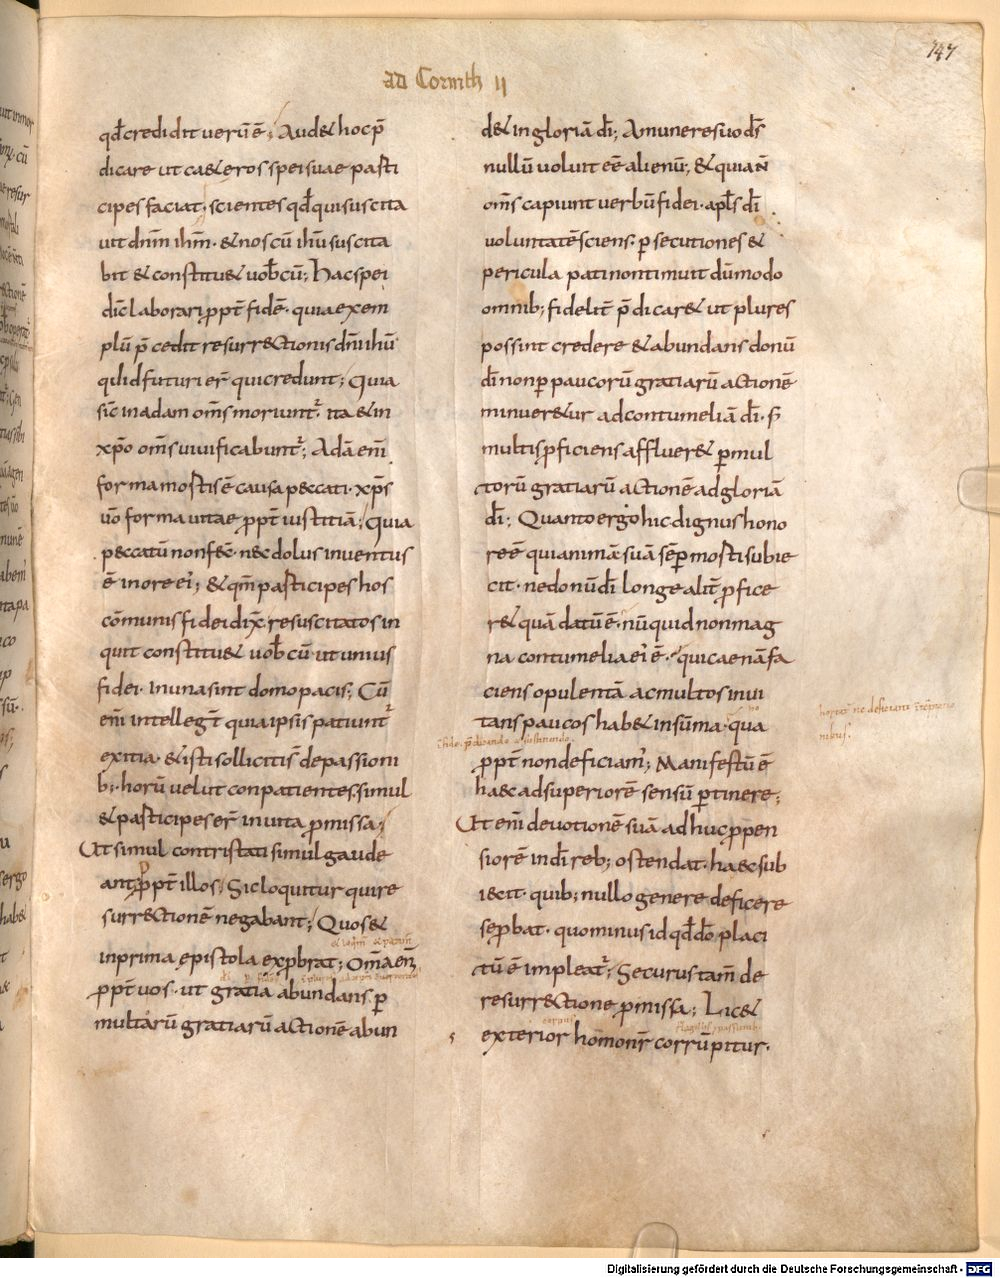 147
ad Corinth II
qđ credidit uerū ē; Audet hoc p̄
dicare ut ceteros spei suae parti
cipes faciat. scientes qđ qui suscita
uit dnm ihm. & nos cū ihu suscita
bit & constituet uobcū; Hac spei
dic̄ laborari ppt̄ fidē. quia exem
plū p̄cedit resurrectionis dni ihu
qđ id futuri er̄ qui credunt; Quia
sic̄ in adam oms moriunt̄. ita & in
xp̄o oms uiuificabunt̄; Adā enī
forma mortis ē causa peccati. xps
uō forma uitae ppt̄ iustitiā; Quia
peccatū non fec̄. nec dolus inuentus
ē in ore ei; & qm̄ participes hos
cōmunis fidei dix̄ resuscitatos in
quit constituet uobcū ut unius
fidei. in una sint domo pacis; Cū
enī intelleg̅t quia ipsi patiunt̄
exitia. & isti solliciti s̄ de passioni
b; horū uelut conpatientes. simul
& participes er̄ in uita p̄missa;
Ut simul contristati simul gaude
ant ppt̄ illos; Sic loquitur qui re
surrectionē negabant; Quos &
in prima epistola expbrat; Omā enī
ppt̄ uos. ut gratia abundans p
multarū gratiarū actionē abun
det in gloriā dī; A munere suo ds
nullū uoluit eē alienū; & quia n̄
oms capiunt uerbū fidei. apls dī
uoluntatē sciens. psecutiones &
pericula pati non timuit dūmodo
omnib; fidelit̄ p̄dicaret ut plures
possint credere & abundans donū
dī non p paucorū gratiarū actionē
minueretur ad contumeliā dī. s̄
multis pficiens afflueret p mul
torū gratiarū actionē ad gloriā
dī; Quanto ergo hic dignus hono
re ē qui animā suā sēp morti subie
cit. ne donū dī longe alit̄ pfice
ret quā datū ē. nūquid non mag
na contumelia ei ē. qui caenā fa
ciens opulentā ac multos inui
tans paucos habet in sūma. qua
horta&#772;r ne deficiant
ppt̄ non deficiam̄; Manifestū ē
haec ad superiorē sensū ptinere;
Ut enī deuotionē suā adhuc ppen
siorē in dī reb; ostendat. haec sub
iecit. quib; nullo genere deficere
se pbat. quominus id qđ dō placi
tū ē impleat̄; Securus tam̄ de
resurrectione p̄missa; Licet
corpus
exterior homo nr̄ corrūpitur.
Digitalisierung gefördert durch die Deutsche Forschungsgemeinschaft - DFG